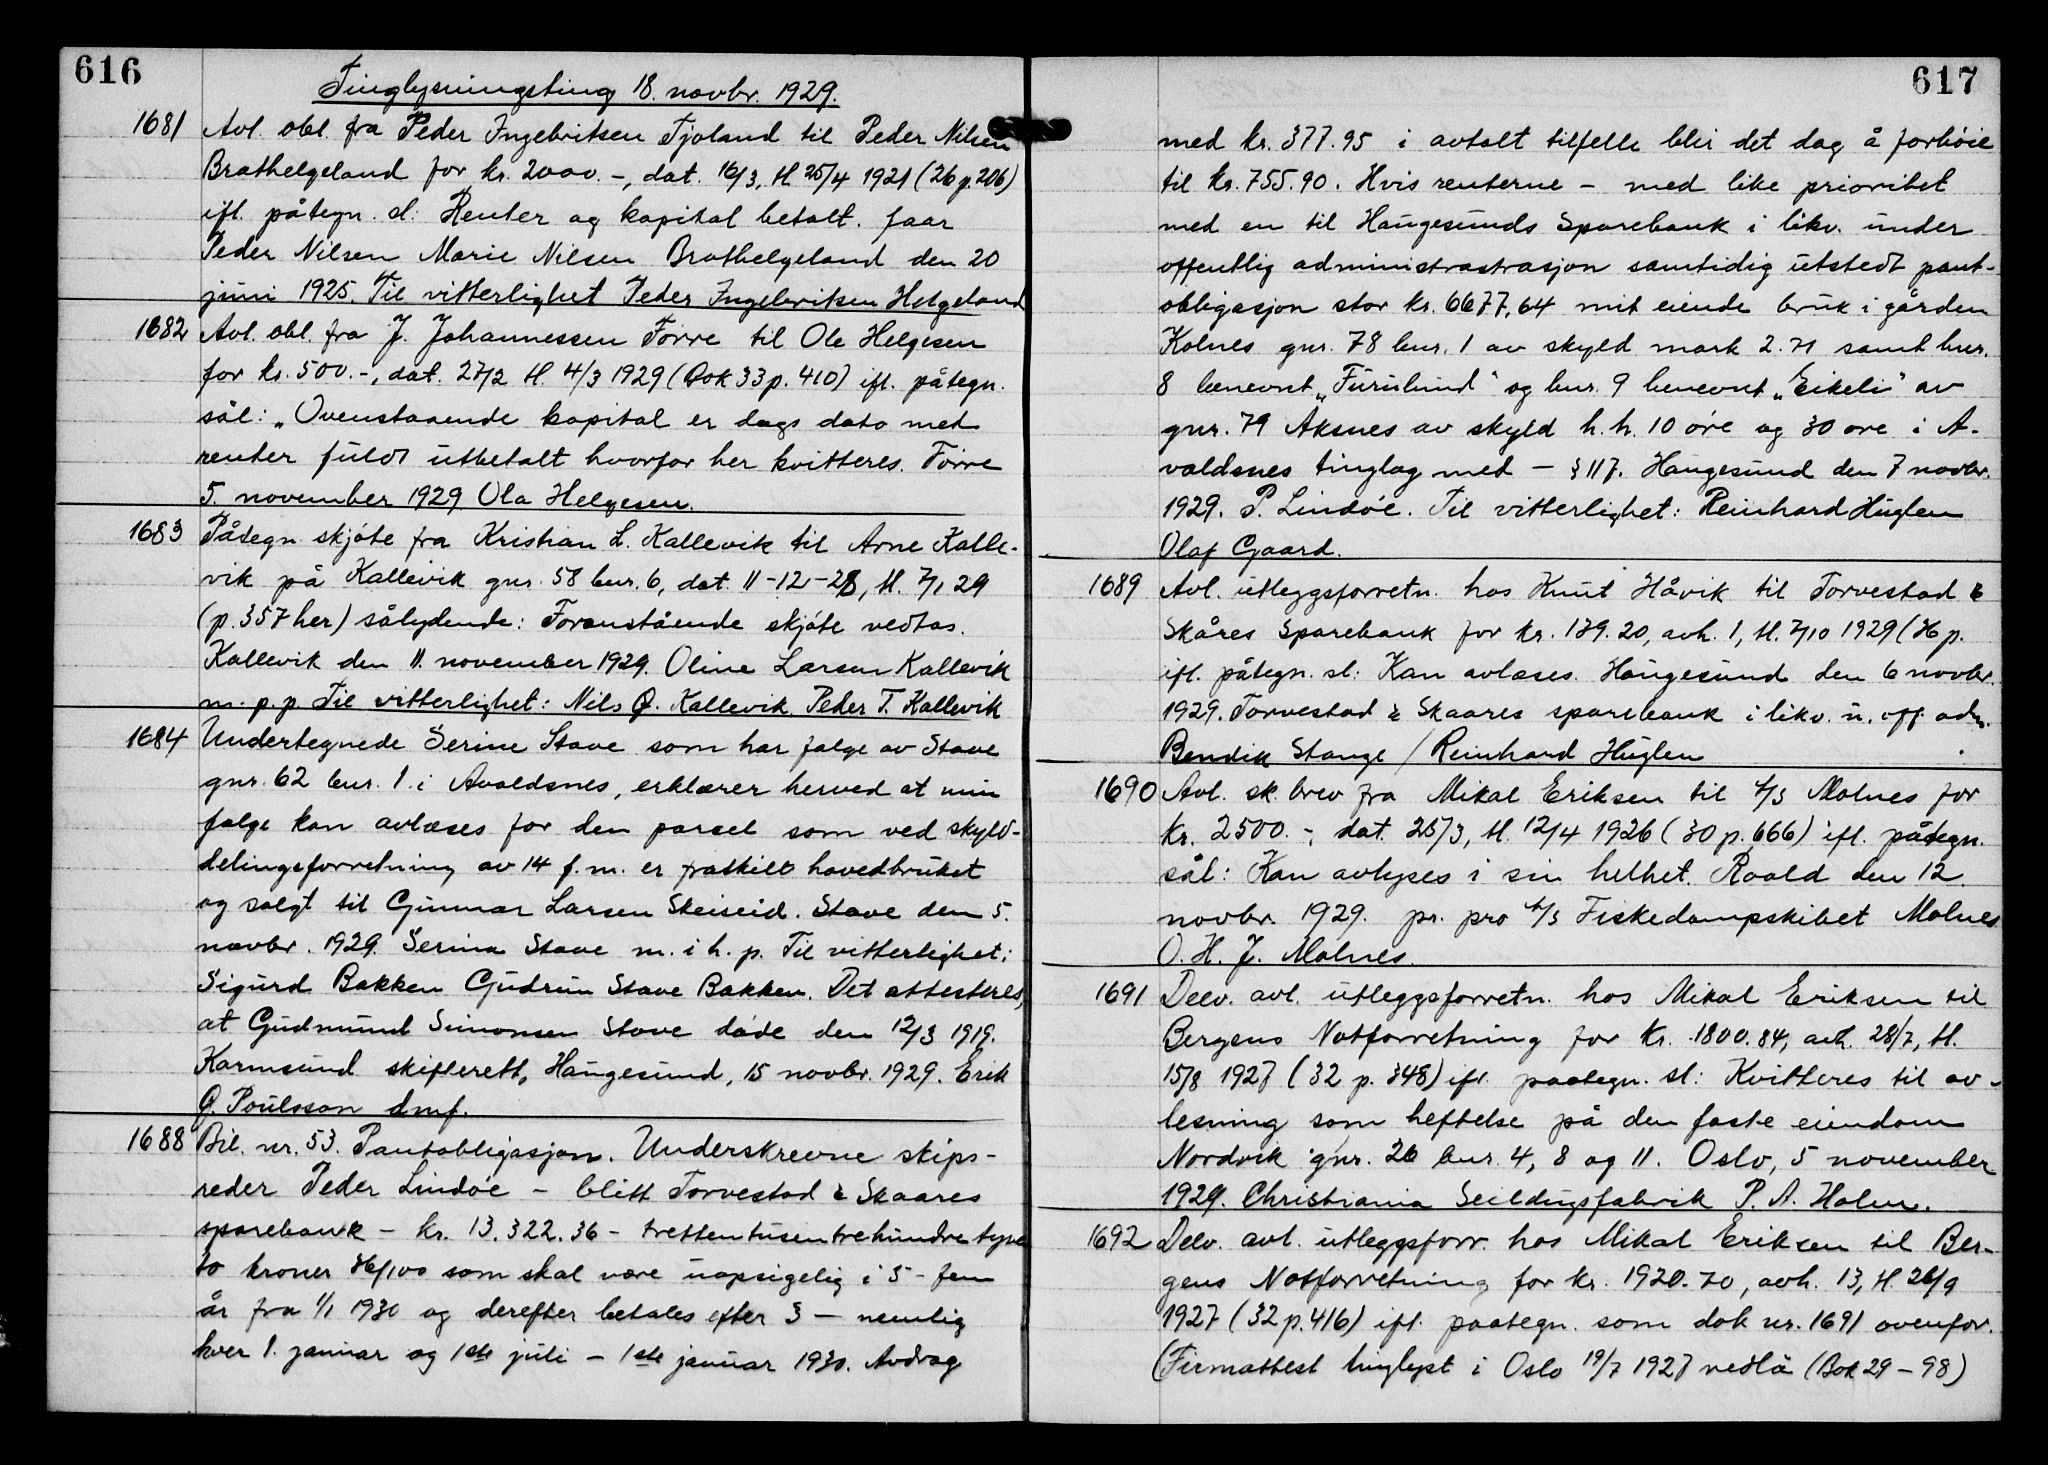 616
Tinglysningsting 18. novbr. 1929.
1681 Avl. obl. fra Peder Ingebritsen Tjoland til Peder Nilsen
Brathelgeland for kr. 2000.-, dat. 16/3, tl 25/4 1921 (26 p. 206)
ifl. påtegn. sl: Renter og kapital betalt. faar
Peder Nilsen Marie Nilsen Brathelgeland den 20
juni 1925. Til vitterlighet Peder Ingebritsen Helgeland
1682 Avl. obl. fra J. Johannessen Førre til Ole Helgesen
for kr. 500.-, dat. 27/2 tl. 4/3 1929 (Bok 33 p. 410) ifl. påtegn.
sål: „Ovenstaaende kapital er dags dato med
renter fuldt utbetalt hvorfor her kvitteres. Førre
5. november 1929 Ola Helgesen.
1683 Påtegn skjøte fra Kristian L. Kallevik til Arne Kalle-
vik på Kallevik gnr. 58 bnr. 6, dat. 11-12-28, tl. 7/1 29
(p. 357 her) sålydende: Foranstående skjøte vedtas.
Kallevik den 11. november 1929. Oline Larsen Kallevik
m. p. p Til vitterlighet: Nils Ø. Kallevik. Peder T. Kallevik
1684 Undertegnede Serine Stave som har følge av Stave
gnr. 62 bnr. 1 i Avaldsnes, erklærer herved at min
følge kan avlæses for den parsel som ved skyld-
delingsforretning av 14 f. m. er fraskilt hovedbruket
og solgt til Gunnar Larsen Skeiseid. Stave den 5.
novbr. 1929. Serina Stave m. i h. p. Til vitterlighet:
Sigurd Bakken Gudrun Stave Bakken. Det attesteres,
at Gudmund Simonsen Stave døde den 12/3 1919.
Karmsund skifterett, Haugesund, 15 novbr. 1929. Erik
Ø. Poulsson dmf.
1688 Bil. nr. 53. Pantobligasjon. Underskrevne skips-
reder Peder Lindøe – blitt Torvestad & Skaares
sparebank – kr. 13.322.36 – trettentusentrehundretyve
to kroner 36/100 som skal være uopsigelig i 5 - fem
år fra 1/1 1930 og derefter betales efter 3 — nemlig
hver 1. januar og 1ste juli – 1ste januar 1930. Avdrag
617
med kr. 377.95 i avtalt tilfelle blir det dog å forhøie
til kr. 755.90. Hvis renterne – med like prioritet
med en til Haugesunds Sparebank i likv. under
offentlig administrastrasjon samtidig utstedt pant-
obligasjon stor kr. 6677,64 mit eiende bruk i gården
Kolnes gnr. 78 bnr. 1 av skyld mark 2.71 samt bnr.
8 benevnt „Furulund" og bnr. 9 benevnt „Eikeli" av
gnr. 79 Aksnes av skyld h. h. 10 øre og 30 øre i A-
valdsnes tinglag med – § 117. Haugesund den 7 novbr.
1929. P. Lindøe. Til vitterlighet: Reinhard Huglen
Olaf Gaard.
1689 Avl. utleggsforretn. hos Knut Håvik til Torvestad &
Skåres Sparebank for kr. 179.20, avh. 1, tl. 7/10 1929 (H p.
ifl. påtegn. sl: Kan avlæses. Haugesund den 6 novbr.
1929. Torvestad & Skaares sparebank i likv. u. off. adm.
Bendik Stange / Reinhard Huglen
1690 Avl. sk. brev fra Mikal Eriksen til A/S Molnes for
kr. 2500.-, dat. 25/3, tl. 12/4 1926 (30 p. 666) ifl. påtegn.
sål: Kan avlyses i sin helhet. Roald den 12
novbr. 1929. pr. pro A/S Fiskedampskibet Molnes
O. H. J. Molnes.
1691 Delv. avl. utleggsforretn. hos Mikal Eriksen til
Bergens Notforretning for kr. 1800.84, avh. 28/7, tl.
15/8 1927 (32 p. 348) ifl. paategn. sl: Kvitteres til av-
lesning som heftelse på den faste eiendom
Nordvik gnr. 26 bnr. 4, 8 og 11. Oslo, 5 november
1929. Christiania Seildugsfabrik P. A. Holm.
1692 Delv. avl. utleggsforr. hos Mikal Eriksen til Ber-
gens Notforretning for kr. 1920.70, avh. 13, tl. 26/9
1927 (32 p. 416) ifl. paategn. som dok nr. 1691 ovenfor.
(Firmattest tinglyst i Oslo 19/7 1927 vedlå (Bok 29 – 98)